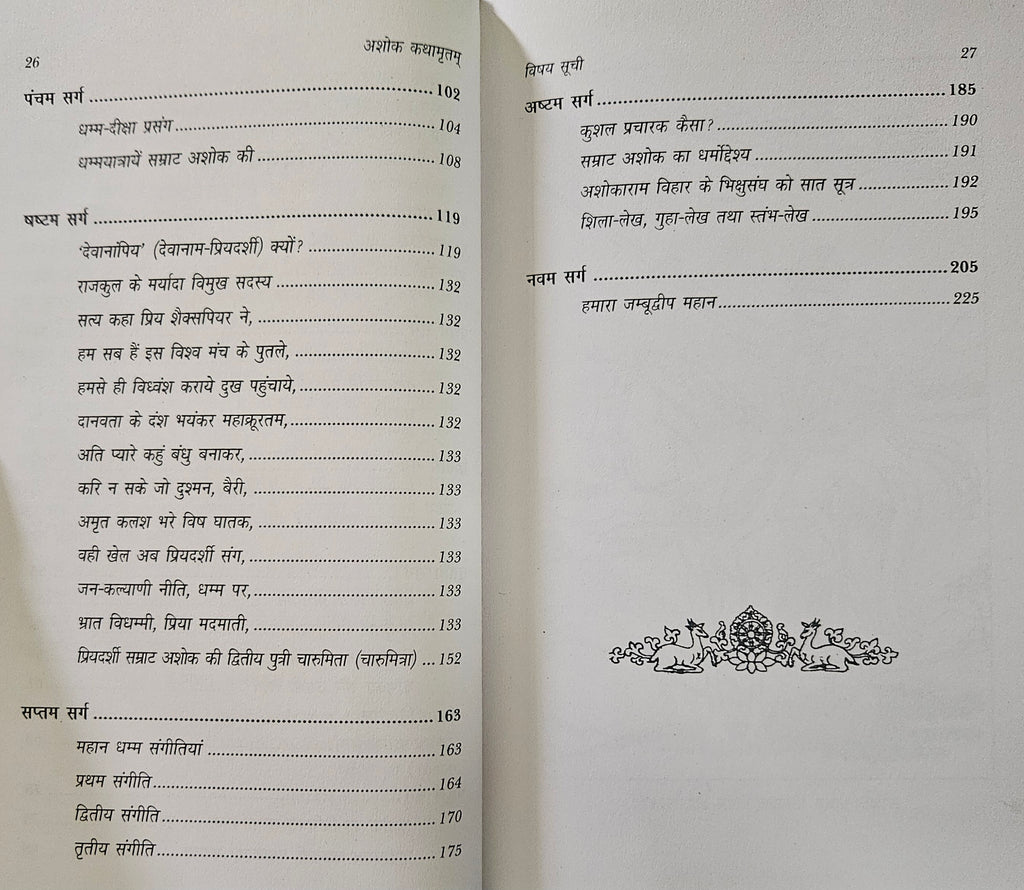 26
अशोक कथामृतम्
पंचम सर्ग ........ 102
धम्म-दीक्षा प्रसंग ........ 104
धम्मयात्रायें सम्राट अशोक की ........ 108
षष्टम सर्ग ........ 119
‘देवानांपिय’ (देवानाम-प्रियदर्शी) क्यों? ........ 119
राजकुल के मर्यादा विमुख सदस्य ........ 132
सत्य कहा प्रिय शैक्सपियर ने, ........ 132
हम सब हैं इस विश्व मंच के पुतले, ........ 132
हमसे ही विध्वंश कराये दुख पहुंचाये, ........ 132
दानवता के दंश भयंकर महाक्रूरतम, ........ 132
अति प्यारे कहुं बंधु बनाकर, ........ 133
करि न सके जो दुश्मन, बैरी, ........ 133
अमृत कलश भरे विष घातक, ........ 133
वही खेल अब प्रियदर्शी संग, ........ 133
जन-कल्याणी नीति, धम्म पर, ........ 133
भ्रात विधम्मी, प्रिया मदमाती, ........ 133
प्रियदर्शी सम्राट अशोक की द्वितीय पुत्री चारुमिता (चारुमित्रा) ... 152
सप्तम सर्ग ........ 163
महान धम्म संगीतियां ........ 163
प्रथम संगीति ........ 164
द्वितीय संगीति ........ 170
तृतीय संगीति ........ 175
विषय सूची
27
अष्टम सर्ग ........ 185
कुशल प्रचारक कैसा? ........ 190
सम्राट अशोक का धर्मोद्देश्य ........ 191
अशोकाराम विहार के भिक्षुसंघ को सात सूत्र ........ 192
शिला-लेख, गुहा-लेख तथा स्तंभ-लेख ........ 195
नवम सर्ग ........ 205
हमारा जम्बूद्वीप महान ........ 225